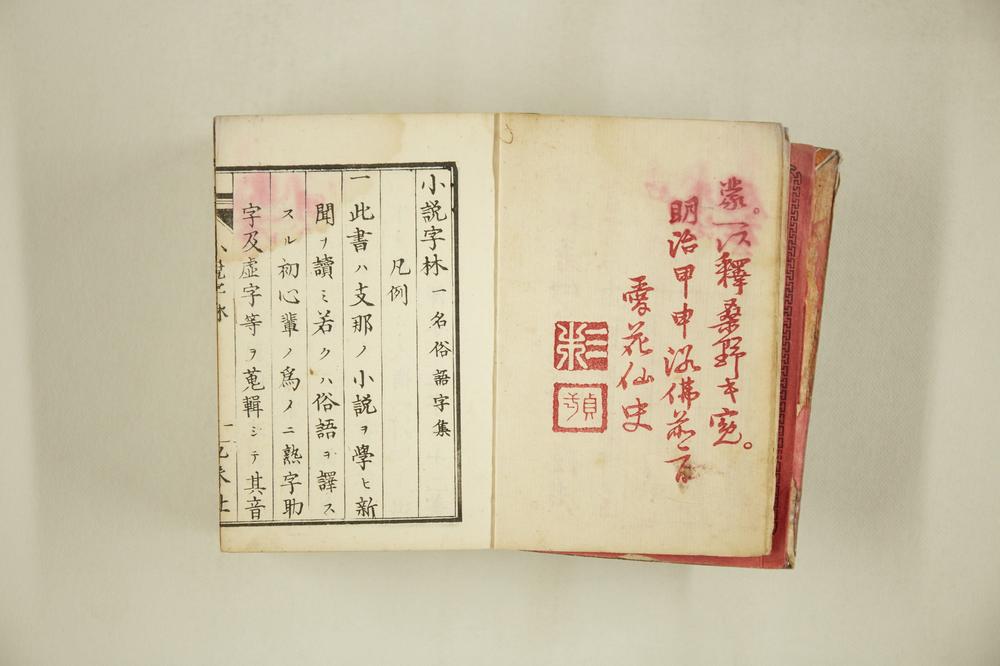 蒙。一以釋桑野寃。
明治甲申浴佛前一日
愛花仙史
小説字林 一名俗語字集
凡例
一此書ハ支那ノ小説ヲ學ヒ新
聞ヲ讀ミ若クハ俗語ヲ譯ス
スル初心輩ノ爲メニ熟字助
字及虚字等ヲ蒐輯シテ其音